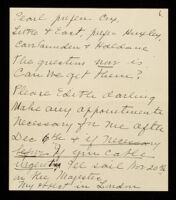 6
Pearl prefers Cox,
Little & East prefer Huxley,
Carsaunders & Haldane
The question now is
Can we get them?
Please Edith darling
Make any appointments
Necessary for me after
Dec 6th & if necessary
before if you cable.
We sail Nov 20th
on the Majestic
My address in London